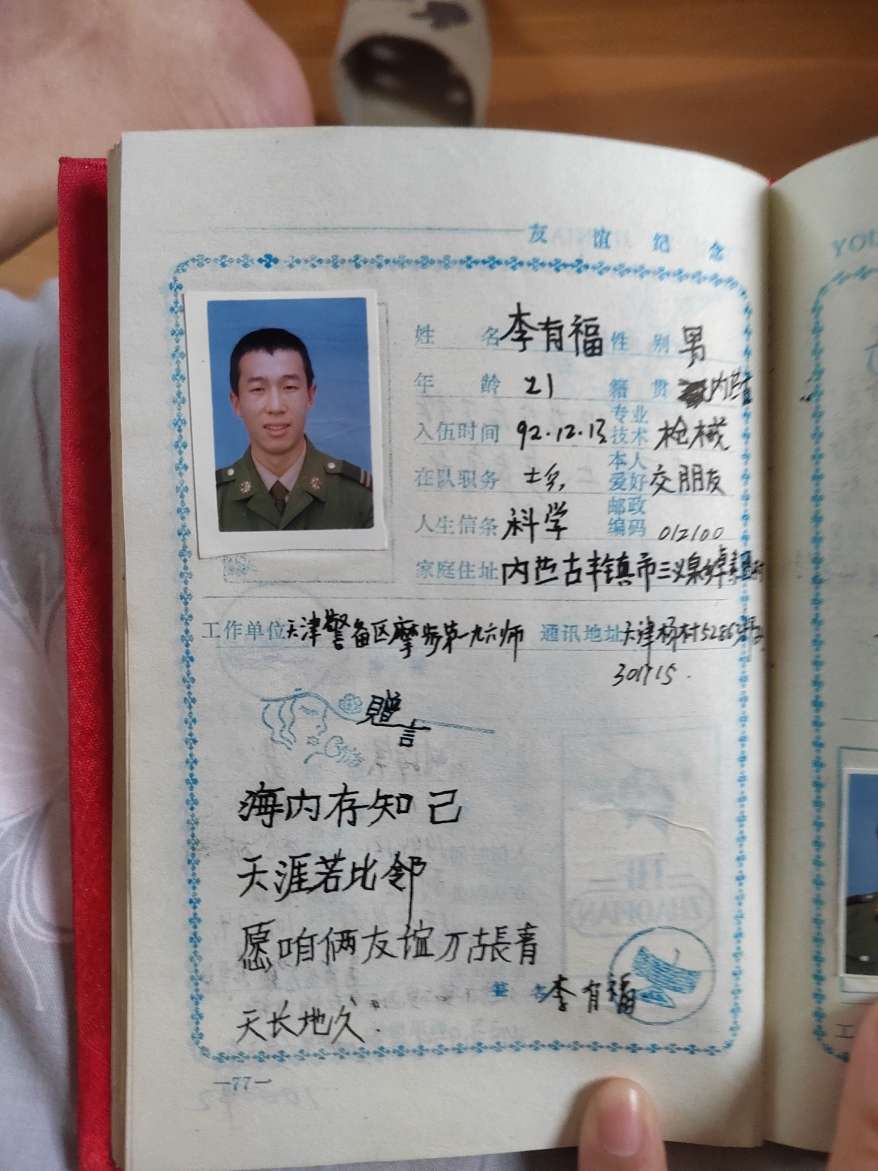 友谊纪念
姓名 李有福 性别 男
年龄 21 籍贯 内芒古
入伍时间 92.12.13 专业技术 枪械
在队职务 战士 本人爱好 交朋友
人生信条 科学 邮政编码 012100
家庭住址 内芒古丰镇市三义泉乡
工作单位 天津警备区摩步第一九六师 通讯地址 天津杨村
301715.
赠言
海内存知己
天涯若比邻
愿咱俩友谊万古長青
签名 李有福
天长地久.
—77—
YOU
工